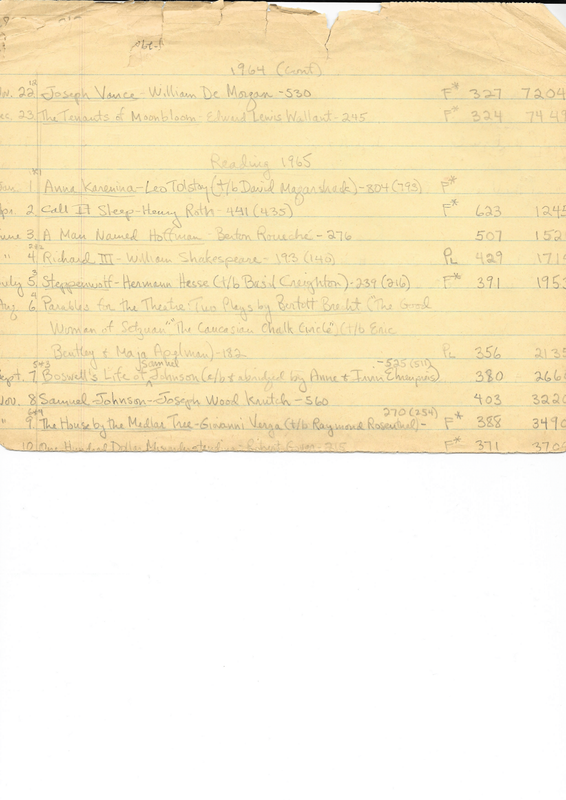 1964 (cont)
22 Joseph Vance - William De Morgan - 530 F* 327 7204
23 The Tenants of Moonbloom - Edward Lewis Wallant - 245 F* 324 744
Reading 1965
1 Anna Karenina - Leo Tolstoy (t/b David Magarshack) - 804 (793) F*
2 Call It Sleep - Henry Roth - 441 (435) F* 623 1245
June 3 A Man Named Hoffman - Berton Roueche - 276 507 152
" 4 Richard III - William Shakespeare - 193 (140) PL 429 171
July 5 Steppenwolf - Hermann Hesse (t/b Basil Creighton) - 239 (216) F* 391 195
Aug 6 Parables for the Theatre - Two Plays by Bertolt Brecht ("The Good
Woman of Setzuan" "The Caucasian Chalk Circle") (t/b Eric
Bentley & Maja Apelman) - 182 PL 356 2135
Samuel - 525 (511)
Sept. 7 Boswell's Life of Johnson (e/b & abridged by Anne & Irvin) 380 266
Nov. 8 Samuel Johnson - Joseph Wood Krutch - 560 403 322
270 (254)
" 9 The House by the Medlar Tree - Giovanni Verga (t/b Raymond Rosenthal) - F* 388 3490
10 One Hundred Dollar - 215 F* 371 370